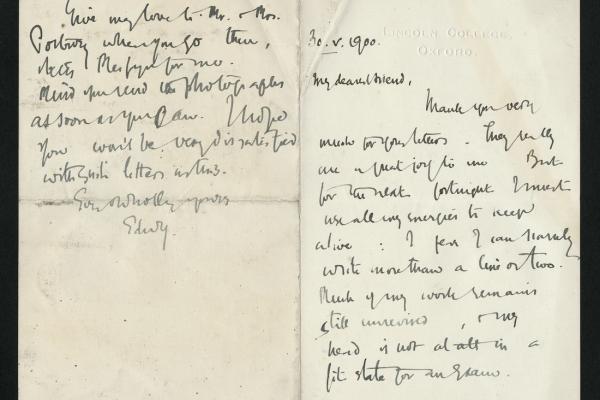 LINCOLN COLLEGE,
OXFORD.
30. V. 1900.
My dearest friend,
Thank you very
much for your letters. They really
are a great joy to me But
for the next fortnight I must
use all my energies to keep
alive : I fear I can scarcely
write more than a line or two.
Much of my work remains
still unrevised , & my
head is not at all in a
fit state for an Exam.
Give my love to Mr. & Mrs.
when you go there,
for me.
Mind you send the photographs
as soon as you can. I hope
you won't be very dissatisfied
with such letters as this.
Ever wholly yours
Edwy.